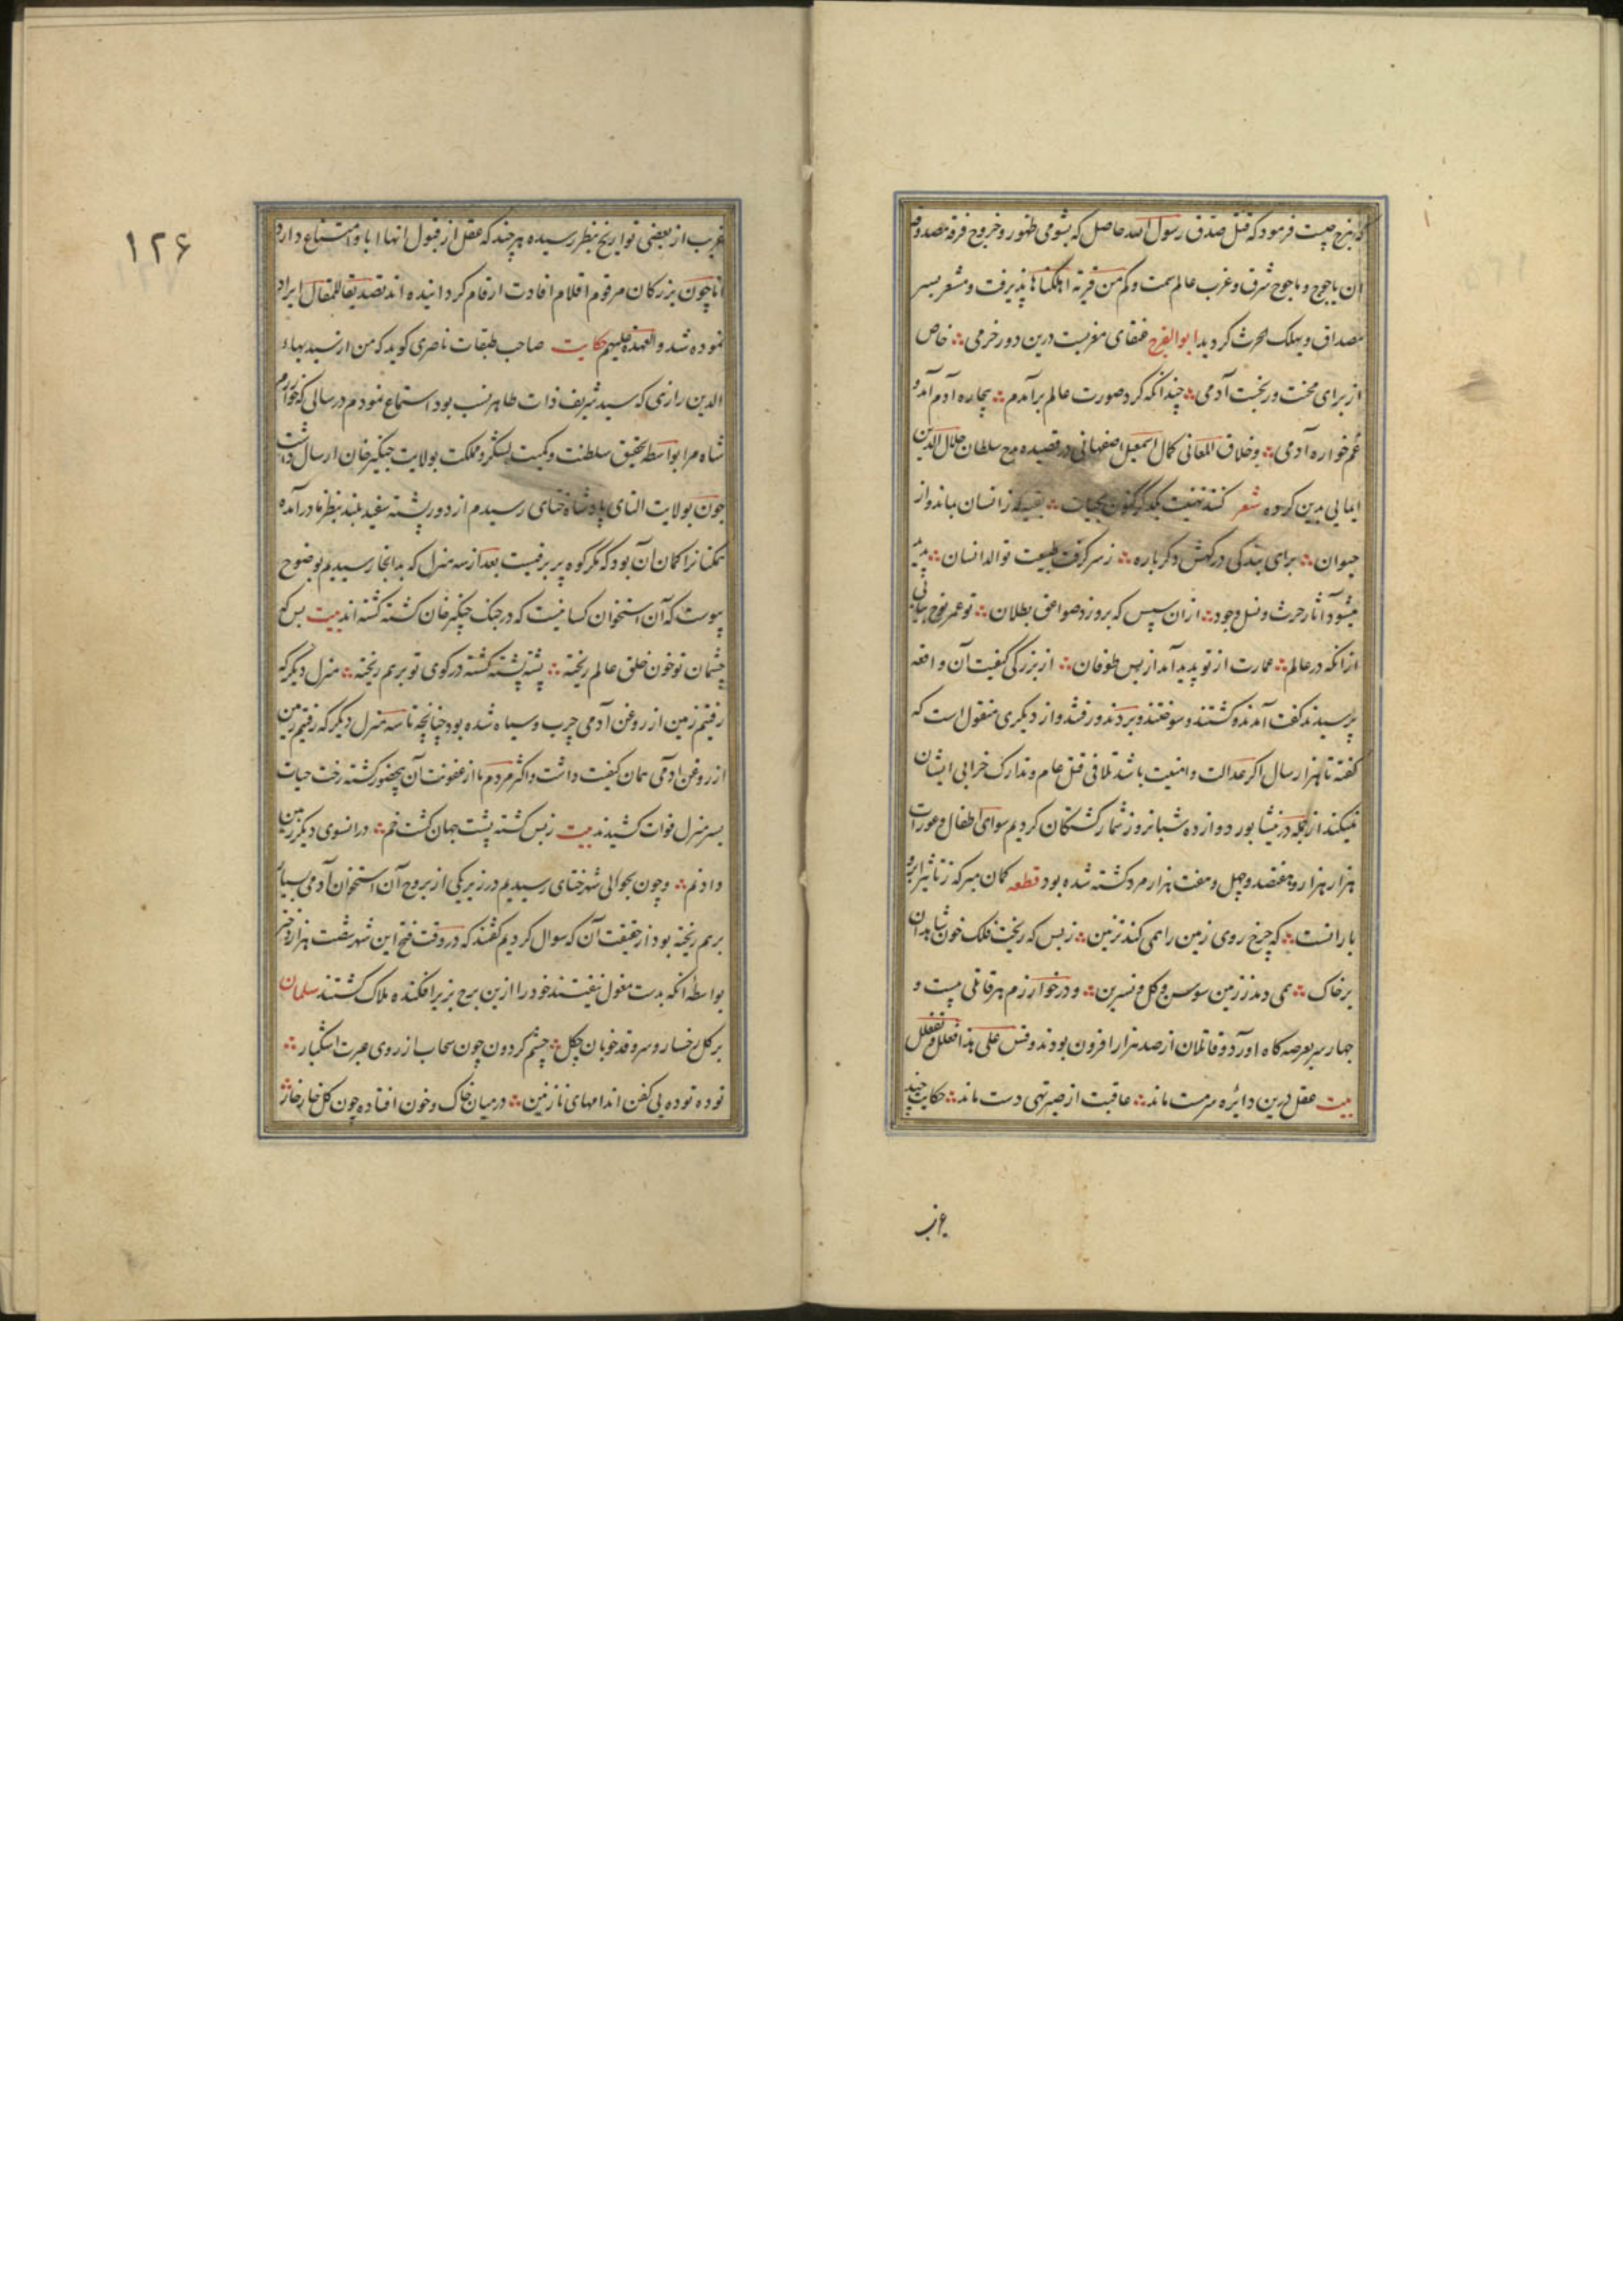 که هرج چیست فرمود که قتل صدق رسول الله حاصل که بشومی ظهور و خروج فرقه مصدوقه
ان یاجوج و ماجوج شرق و غرب عالم سمت و کم من قریة اهلکناها پذیرفت و مشعر بسر
مصداق و یهلک الحرث کردید ابوالفرج عنقای مغربست درین دور خرمی خاص
از برای محنت و رنجست آدمی چندانکه کرد صورت عالم برآمدم بیچاره آدم آمد و
غم خواره آدمی و خلاق المعانی کمال اسمعیل اصفهانی در قصیده مدح سلطان جلال الدین
ایمایی بدین کرده شعر کنند تهنیت یکدگر بحیات بقیه که ز انسان بماند و از
حیوان برای بندگی درکهش دکرباره ز سر کرفت طبیعت توالد انسان پدید
میشود آثار حرث و نسل وجود ازان سپس که بروزد صواعق بطلان تو عمر نوح بیابی
ازانکه در عالم عمارت از تو پدید آمد از پس طوفان از بزرکی کیفیت آن واقعه
پرسیدند کفت آمدند و کشتند و سوختند و بردند و رفتند و از دیکری منقول است که
کفته تا هزار سال اکر عدالت و امنیت باشد تلافی قتل عام و تدارک خرابی ایشان
نمیکند ازانجمله در نیشابور دوازده شبانروز شمار کشتکان کردیم سوای اطفال و عورات
هزار هزار و هفتصد و چهل و هفت هزار مرد کشته شده بود قطعه کمان مبر که ز تاثیر ابر و
بارانست که چرخ روی زمین را همی کند تزیین ز بس که ریخت فلک خون شاهدان
بر خاک همی دمد ز زمین سوسن و کل و نسرین و در خوارزم هر قاتلی بیست و
چهار سر بعرصه کاه آورد و قاتلان از صد هزار افزون بودند و قس علی هذا فعلل و تفعلل
بیت عقل درین دائره سرمست ماند عاقبت از صبر تهی دست ماند حکایت چند
غریب
۱۲۶
غریب از بعضی تواریخ بنظر رسیده هر چند که عقل از قبول انها ابا و امتناع دارد
اما چون بزرکان مرقوم اقلام افادت ارقام کردانیده اند تصدیقا للمقال ایراد
نموده شد والعهدة علیهم حکایت صاحب طبقات ناصری کوید که من از سید بهاء
الدین رازی که سید شریف ذات طاهر نسب بود استماع نمودم در سالی که خوارزم
شاه مرا بواسطه تحقیق سلطنت و کمیت لشکر و مملکت بولایت چنکیز خان ارسال داشت
چون بولایت التای پادشاه ختای رسیدم از دور پشته سفید بلند بنظر ما درآمده
همکنانرا کمان آن بود که مکر کوه پر برفیست بعد از سه منزل که بدانجا رسیدیم بوضوح
پیوست که آن استخوان کسانیست که در جنک چنکیز خان کشته کشته اند بیت بس که
چشمان تو خون خلق عالم ریخته پشته پشته کشته در کوی تو برهم ریخته منزل دیکر که
رفتیم زمین از روغن آدمی چرب و سیاه شده بود چنانچه تا سه منزل دیکر که رفتیم زمین
از روغن آدمی همان کیفیت داشت و اکثر مردم ما از عفونت آن بیحضور کشته رخت حیات
بسر منزل فوات کشیدند بیت ز بس کشته پشت جهان کشت خم در انسوی دیکر زمین
داد نم و چون بحوالی شهر ختای رسیدیم در زیر یکی از بروج آن استخوان آدمی بسیار
برهم ریخته بود از حقیقت آن که سوال کردیم کفتند که در وقت فتح این شهر شصت هزار دختر
بواسطه انکه بدست مغول نیفتند خود را ازین برج بزیر افکنده هلاک کشتند سلمان
بر کل رخسار و سرو قد خوبان چکل چشم کردون چون سحاب از روی عبرت اشکبار
توده توده بی کفن اندامهای نازنین در میان خاک و خون افتاده چون کل خار خار